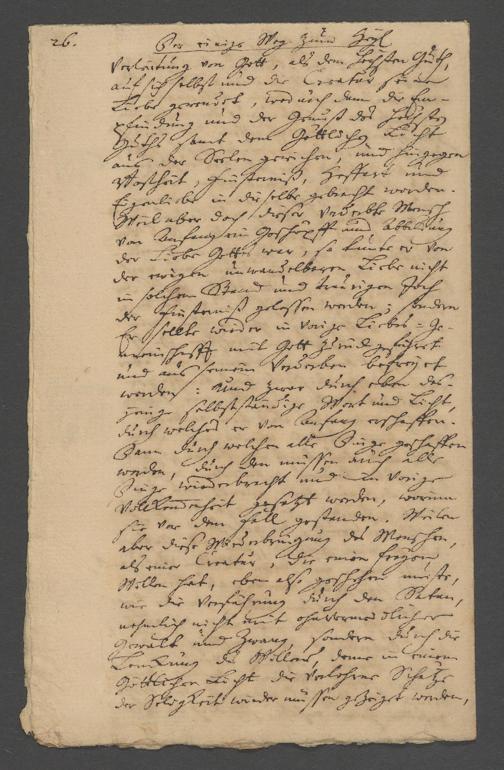 26. Der einige Weg zum Heyl
Verleitung von Gott, als dem höchsten Guth,
auf sich selbst und die Creatur seine
Liebe gewendet, wodurch dann die Em-
pfindung und der Genuß des höchsten
Guths samt dem Göttlichen Licht
aus der Seelen gewichen, und hingegen
Boßheit, Finsterniß, Hoffart und
Eigenliebe in dieselbe gebracht worden.
Weil aber doch dieser verderbte Mensch
von Anfang ein Geschöpff und Abbildung
der Liebe Gottes war, so kunte er von
der ewigen unwandelbaren Liebe nicht
in solchem Stand und traurigen Joch
der Finsterniß gelassen werden; sondern
Er sollte wieder in vorige Liebes-Ge-
meinschafft mit Gott zurück geführet
und aus seinem Verderben befreyet
werden: Und zwar durch eben das-
jenige selbstständige Wort und Licht,
durch welches er von Anfang erschaffen.
Dann durch welchen alle Dinge geschaffen
worden, durch den müssen auch alle
Dinge wiederbracht und in vorige
Vollkommenheit gesetzt werden, worinn
sie vor dem Fall gestanden. Weilen
aber diese Wiederbringung des Menschen,
als einer Creatur, die einen freyen
Willen hat, eben also geschehen muste,
wie die Verführung durch den Satan,
nehmlich nicht mit ohnvermeidlicher
Gewalt und Zwang, sondern durch die
Lenkung des Willens, deme in einem
Göttlichen Licht die verlohrne Schätze
der Seligkeit wieder müssen gezeiget werden,